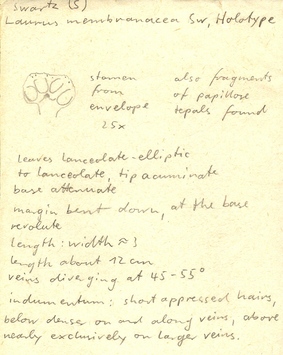 Swartz (S)
Laurus membranacea Sw, Holotype
stamen from envelope 25x
also fragments of papillose tepals found
leaves lanceolate-elliptic
to lanceolate, tip acuminate
base attenuate
margin bent down, at the base
revolute
length: width ≈ 3
length about 12 cm
veins diverging at 45-55°
indumentum: short appressed hairs,
below denser on and along veins, above
nearly exclusively on larger veins.